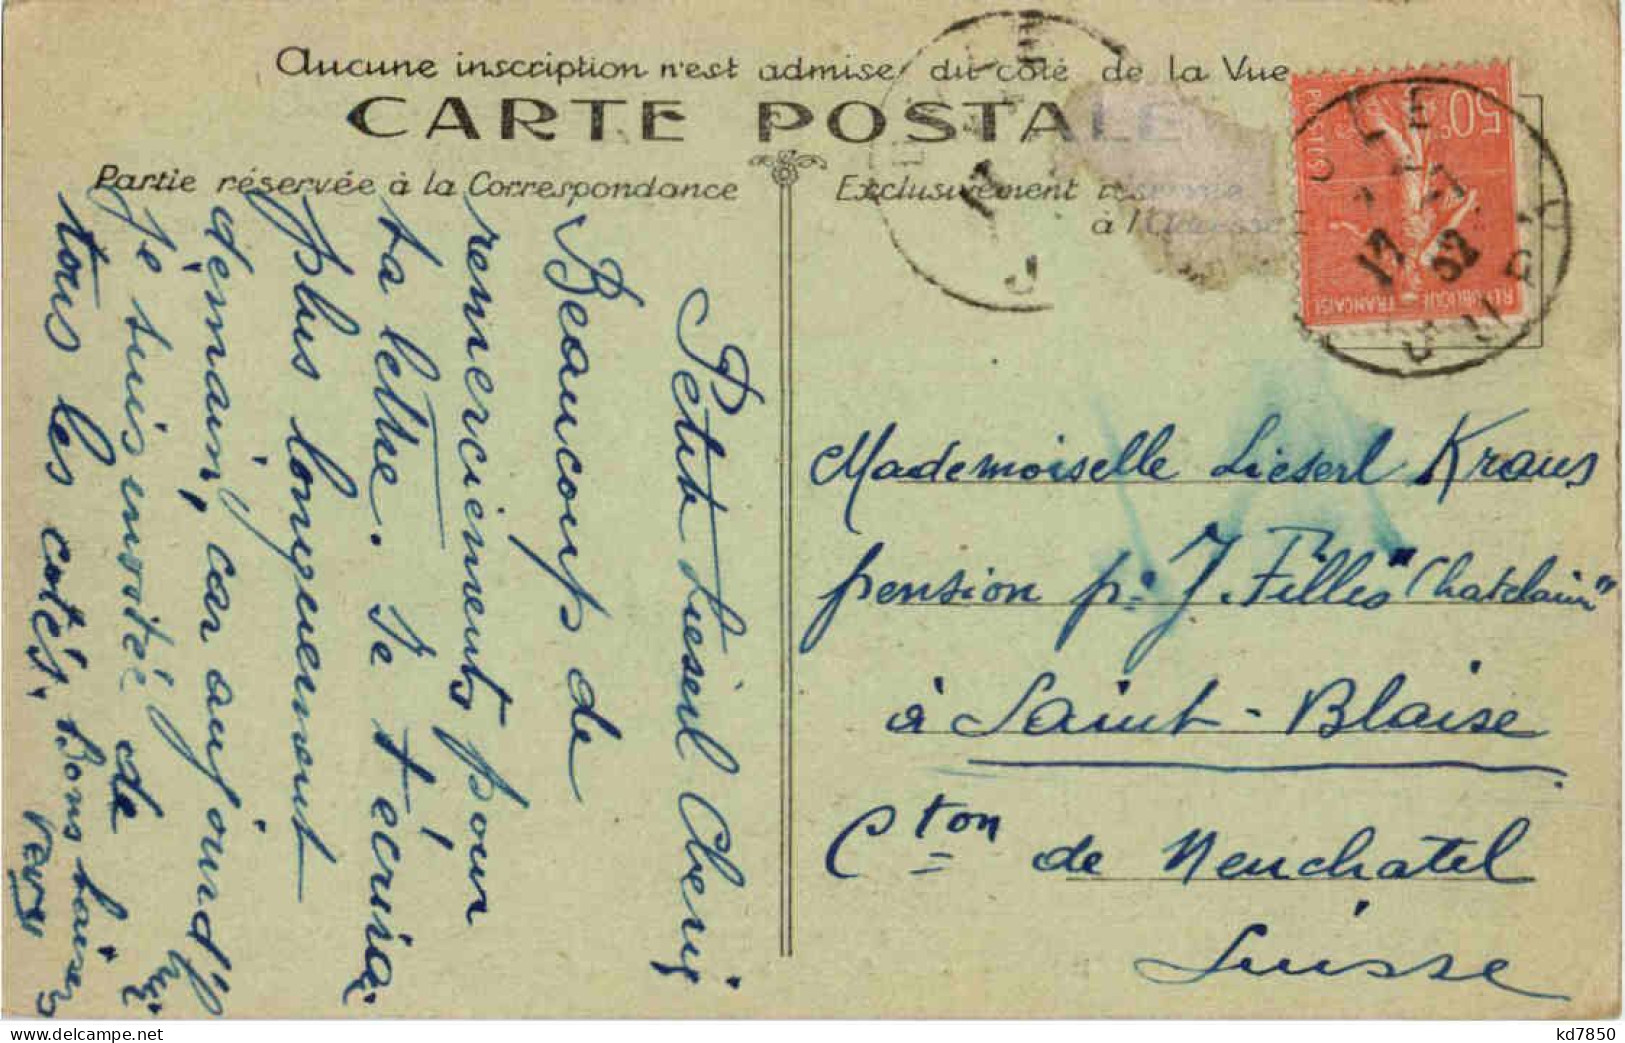 Aucune inscription n'est admise du coté de la Vue
CARTE POSTALE
Partie réservée à la Correspondance
Exclusivement réservée
à l'Adresse
50c
POSTES
REPUBLIQUE FRANÇAISE
17
32
JURA
Petit Lieserl Cheri
Beaucoup de
remerciements pour
ta lettre. Je t'écrirai
plus longuement
démain, car aujourd'hui
je suis invitée de
tous les cotés. Bons baisers
Mademoiselle Lieserl Kraus
pension pr J. Filles "Chatelain"
à Saint-Blaise
Cton de Neuchatel
Suisse
delcampe.net
kd7850